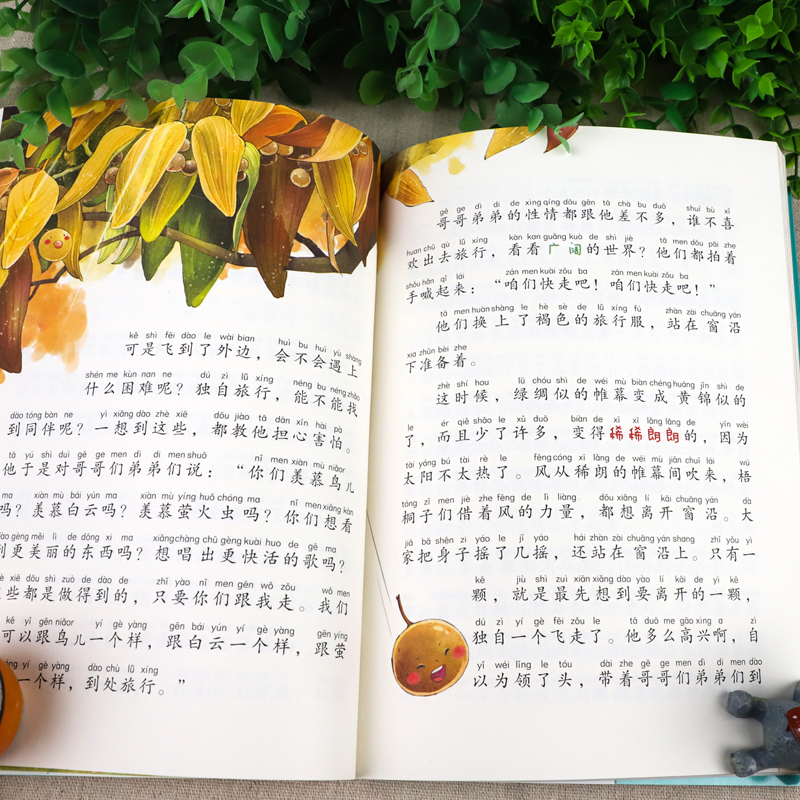 kě shì fēi dào le wài bian huì bu huì yù shàng
可是飞到了外边，会不会遇上
shén me kùn nan ne dú zì lǚ xíng néng bu néng zhǎo
什么困难呢？独自旅行，能不能找
dào tóng bàn ne yì xiǎng dào zhè xiē dōu jiào tā dān xīn hài pà
到同伴呢？一想到这些，都教他担心害怕。
tā yú shì duì gē ge men dì di men shuō nǐ men xiàn mù niǎor
他于是对哥哥们弟弟们说：“你们羡慕鸟儿
ma xiàn mù bái yún ma xiàn mù yíng huǒ chóng ma nǐ men xiǎng kàn
吗？羡慕白云吗？羡慕萤火虫吗？你们想看
dào gèng měi lì de dōng xi ma xiǎng chàng chū gèng kuài huo de gē ma
到更美丽的东西吗？想唱出更快活的歌吗？
xiē dōu shì zuò de dào de zhǐ yào nǐ men gēn wǒ zǒu wǒ men
些都是做得到的，只要你们跟我走。我们
kě yǐ gēn niǎor yí gè yàng gēn bái yún yí gè yàng gēn yíng
可以跟鸟儿一个样，跟白云一个样，跟萤
yí gè yàng dào chù lǚ xíng
一个样，到处旅行。”
gē ge dì di de xìng qíng dōu gēn tā chà bu duō shuí bù xǐ
哥哥弟弟的性情都跟他差不多，谁不喜
huan chū qù lǚ xíng kàn kan guǎng kuò de shì jiè tā men dōu pāi zhe
欢出去旅行，看看广阔的世界？他们都拍着
shǒu hǎn qǐ lái zán men kuài zǒu ba zán men kuài zǒu ba
手喊起来：“咱们快走吧！咱们快走吧！”
tā men huàn shàng le hè sè de lǚ xíng fú zhàn zài chuāng yán
他们换上了褐色的旅行服，站在窗沿
xia zhǔn bèi zhe
下准备着。
zhè shí hou lǜ chóu shì de wéi mù biàn chéng huáng jǐn shì de
这时候，绿绸似的帷幕变成黄锦似的
le ér qiě shǎo le xǔ duō biàn de xī xī lǎng lǎng de yīn wèi
了，而且少了许多，变得稀稀朗朗的，因为
tài yáng bú tài rè le fēng cóng xī lǎng de wéi mù jiān chuī lái wú
太阳不太热了。风从稀朗的帷幕间吹来，梧
tóng zǐ men jiè zhe fēng de lì liàng dōu xiǎng lí kāi chuāng yán dà
桐子们借着风的力量，都想离开窗沿。大
jiā bǎ shēn zi yáo le jǐ yáo hái zhàn zài chuāng yán shàng zhǐ yǒu yì
家把身子摇了几摇，还站在窗沿上。只有一
kē jiù shì zuì xiān xiǎng dào yào lí kāi de yì kē
颗，就是最先想到要离开的一颗，
dú zì yí gè fēi zǒu le tā duō me gāo xìng a zì
独自一个飞走了。他多么高兴啊，自
yǐ wéi lǐng le tóu dài zhe gē ge men dì di men dào
以为领了头，带着哥哥们弟弟们到